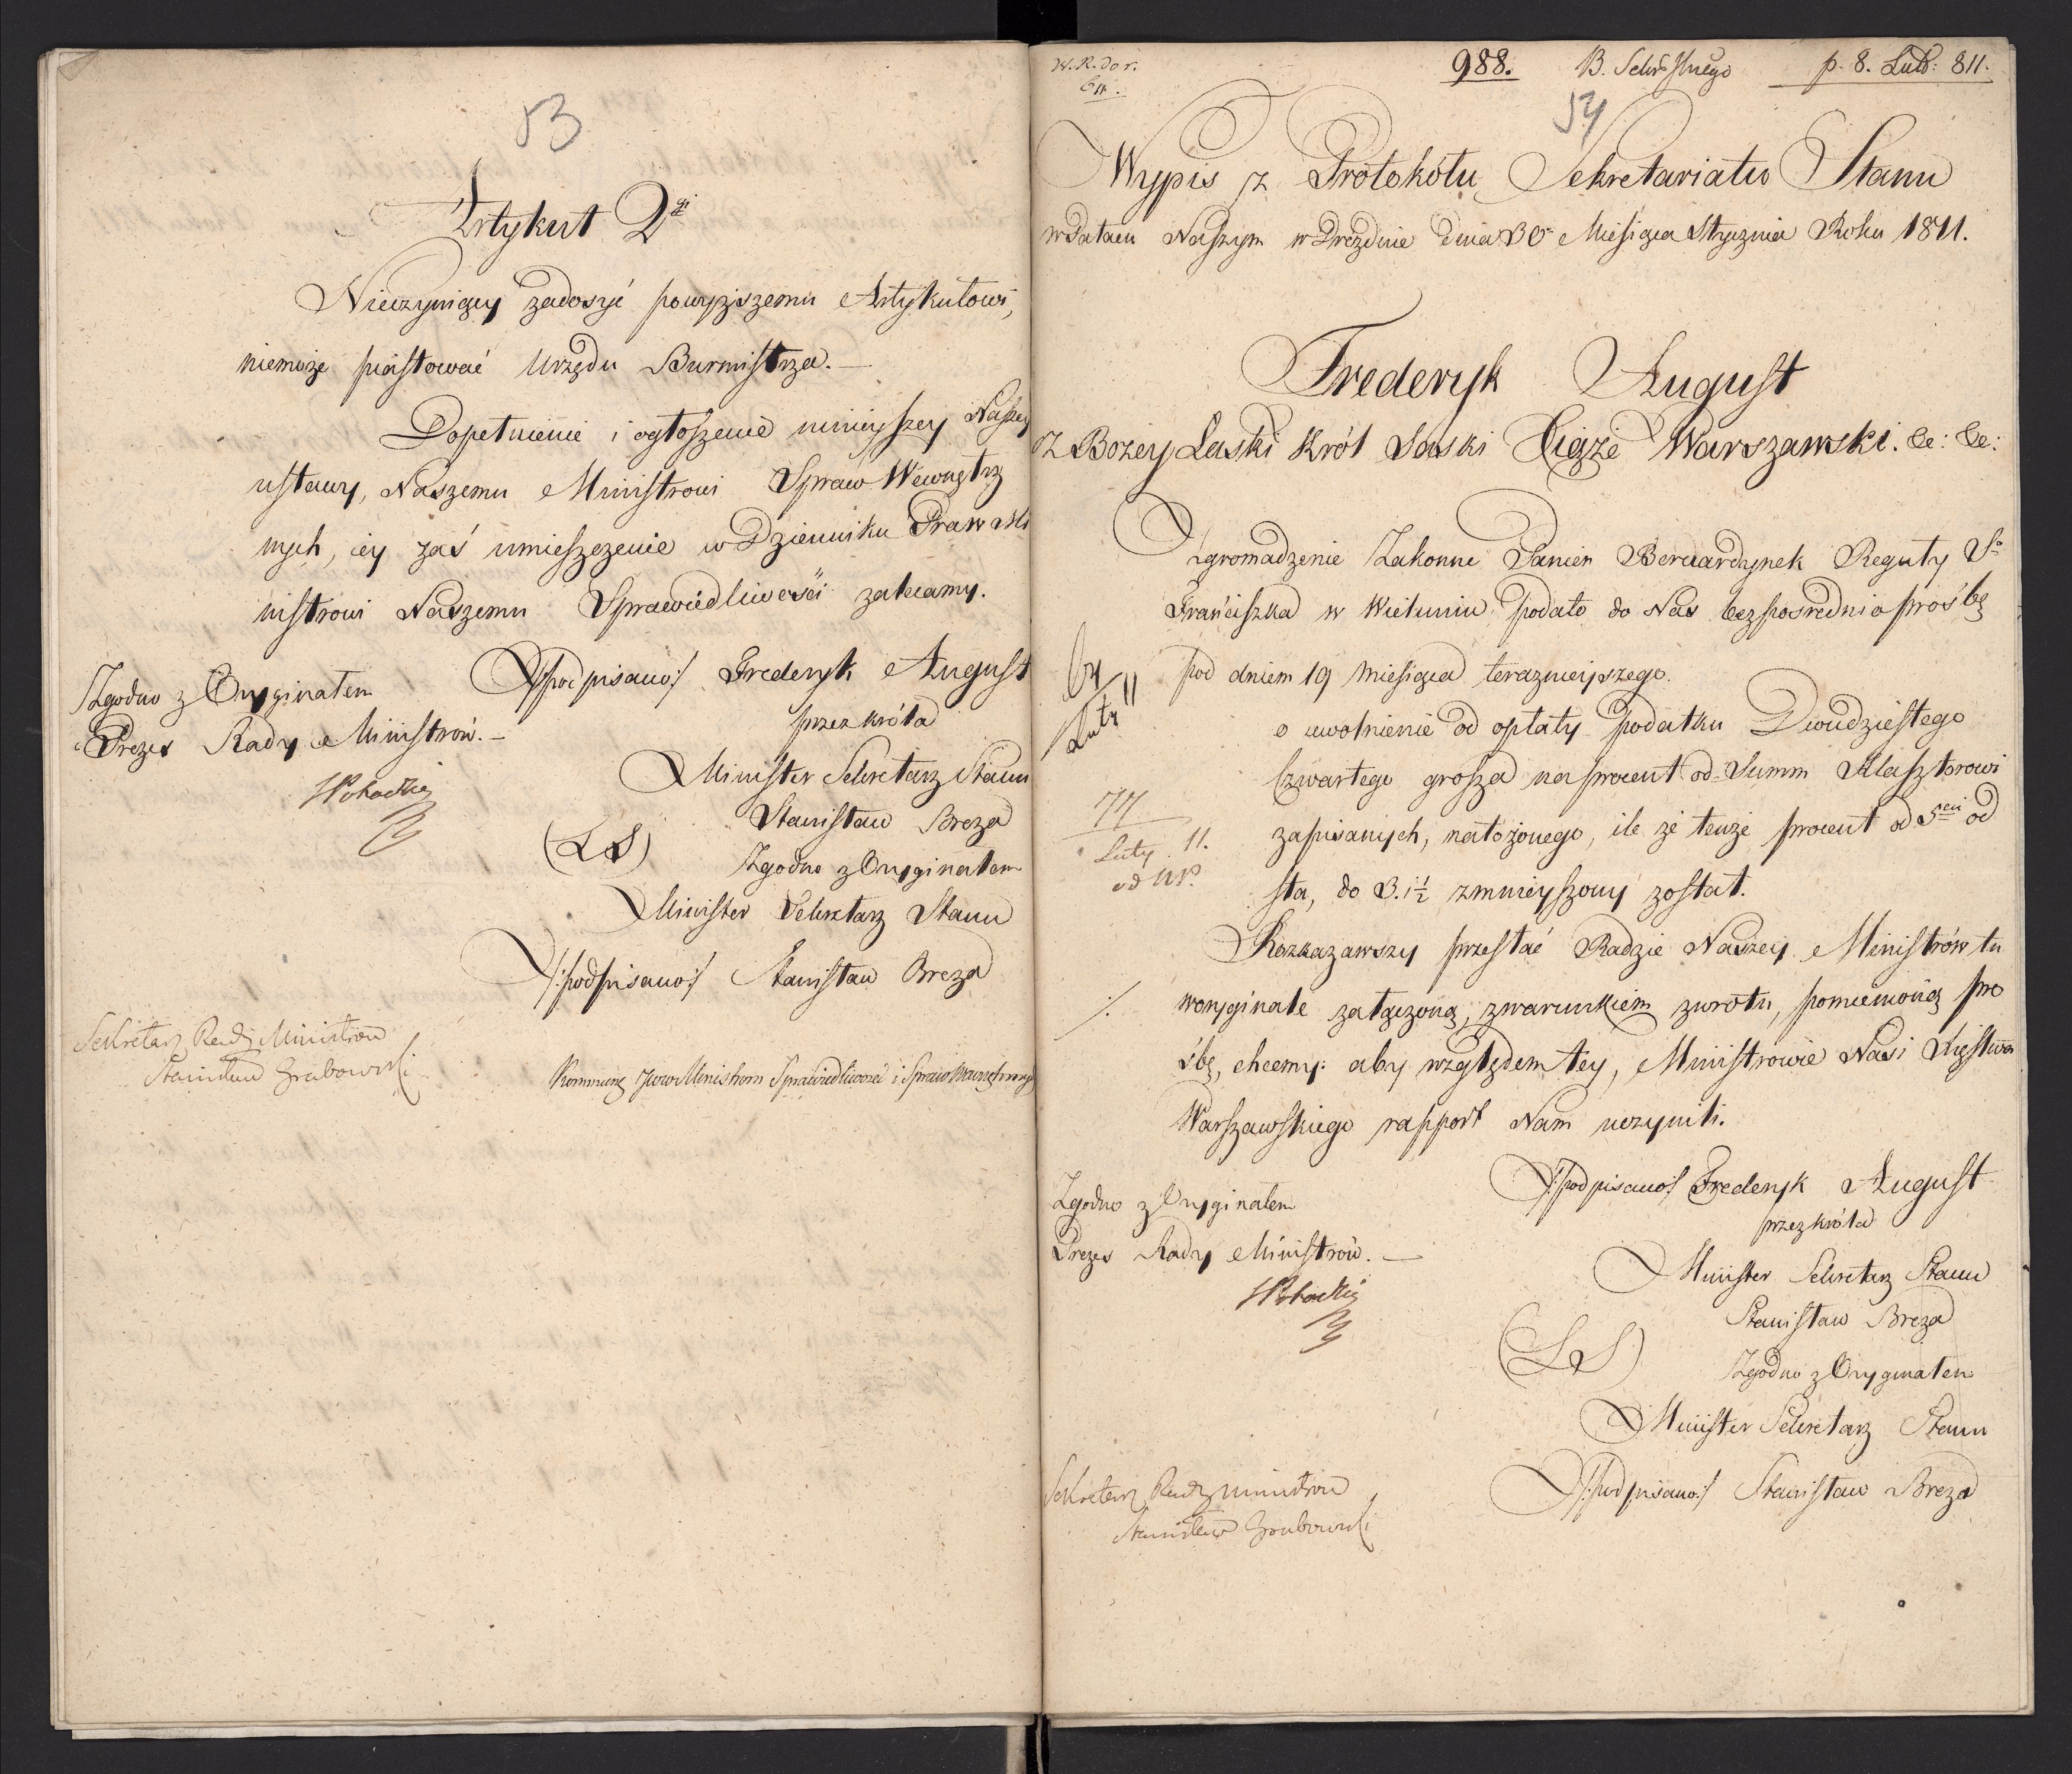 53
Artykuł 2gi
Nieczyniący zadosyć powyższemu Artykułowi,
niemoże piastować Urzędu Burmistrza. —
Dopełnienie i ogłoszenie ninieyszey Naszey
ustawy, Naszemu Ministrowi Spraw Wewnętrz
nych, iey zaś umieszczenie w Dzienniku Praw Mi
nistrowi Naszemu Sprawiedliwości zalecamy.
/:podpisano:/ Frederyk August
przez króla
Minister Sekretarz Stanu
Stanisław Breza
(LS) Zgodno z Oryginałem
Minister Sekretarz Stanu
/:podpisano:/ Stanisław Breza
Zgodno z Oryginałem
Prezes Rady Ministrów. —
Sekretarz Rady Ministrów
Stanisław Grabowski
Ministrom Sprawiedliwości i Spraw Wewnętrznych
988. p. 8. Lut: 811.
54
Wypis z Protokółu Sekretariatu Stanu
w Pałacu Naszym w Dreźnie dnia 30 Miesiąca Stycznia Roku 1811.
Frederyk August
Z Bożey Łaski Król Saski Xiąże Warszawski. &c: &c:
Zgromadzenie Zakonne Panien Bernardynek Reguły So
Franciszka w Wieluniu podało do Nas bezpośrednio prośbę
pod dniem 19 miesiąca teraznieyszego.
o uwolnienie od opłaty podatku Dwudziestego
Czwartego grosza na procent od Summ Klasztorowi
zapisanych, nałożonego, ile że tenże procent od 5ciu od
sta, do 3. i ½ zmnieyszony został.
Rozkazawszy przesłać Radzie Naszey Ministrów tu
w oryginale załączoną, z warunkiem zwrotu, pomienioną pro
śbę, chcemy: aby względem tey, Ministrowie Nasi Xięstwa
Warszawskiego rapport Nam uczynili.
/:podpisano:/ Frederyk August
przez króla
Minister Sekretarz Stanu
Stanisław Breza
(LS) Zgodno z Oryginałem
Minister Sekretarz Stanu
/:podpisano:/ Stanisław Breza
77
Luty 11.
Zgodno z Oryginałem
Prezes Rady Ministrów. —
Sekretarz Rady Ministrów
Stanisław Grabowski